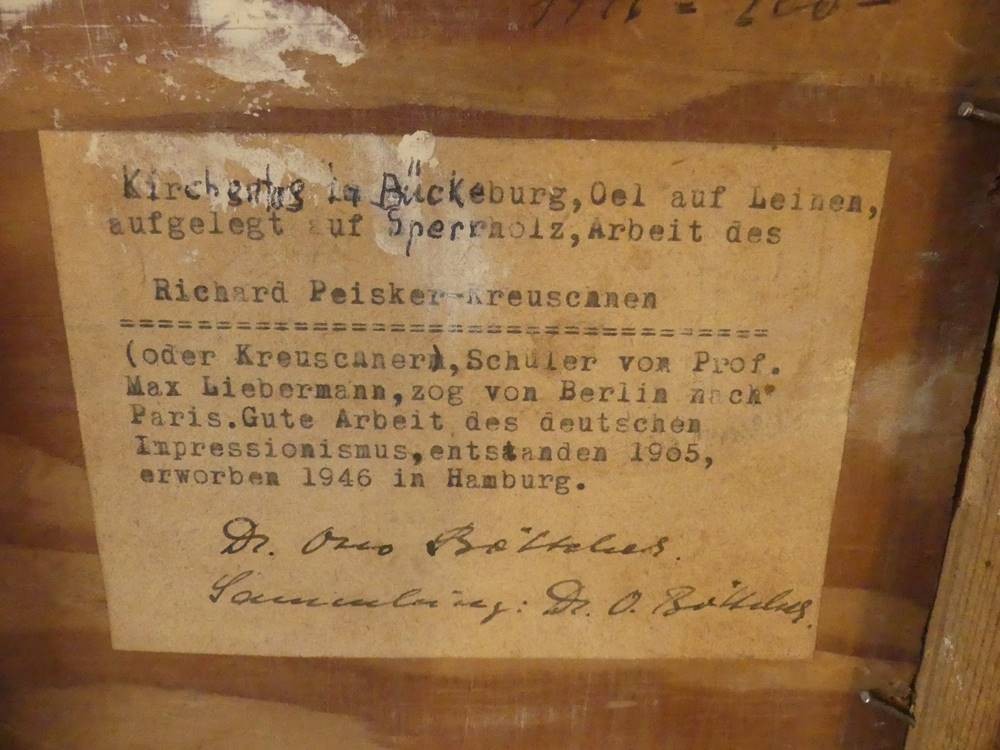 Kirchgang in Bückeburg,Oel auf Leinen,
aufgelegt auf Sperrholz,Arbeit des
Richard Peisker-Kreuschnen
==================================
(oder Kreuschnern),Schüler von Prof.
Max Liebermann,zog von Berlin nach
Paris.Gute Arbeit des deutschen
Impressionismus,entstanden 1905,
erworben 1946 in Hamburg.
Dr. Otto Böttcher.
Sammlung: Dr. O. Böttcher.